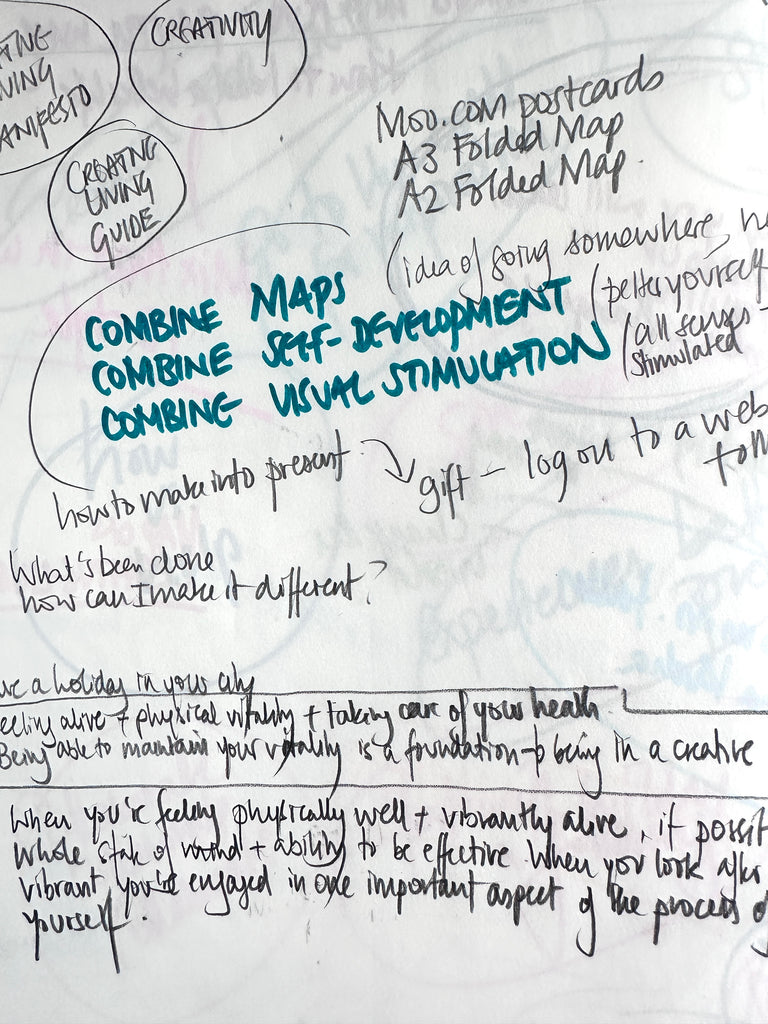 CREATIVITY
MANIFESTO
CREATING
LIVING
GUIDE
Moo.com postcards
A3 Folded Map
A2 Folded Map.
(idea of going somewhere,
COMBINE MAPS
COMBINE SELF-DEVELOPMENT
(better yourself
COMBINE VISUAL STIMULATION
(all senses
stimulated
how to make into present
gift - log on to a web
What's been done
how can I make it different?
a holiday in your city
feeling alive + physical vitality + taking care of your health
Being able to maintain your vitality is a foundation to being in a creative
When you're feeling physically well + vibrantly alive, it
whole state of mind + ability to be effective. When you look after
vibrant, you're engaged in one important aspect of the process of
yourself.